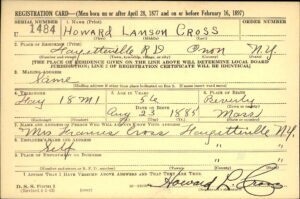 REGISTRATION CARD—(Men born on or after April 28, 1877 and on or before February 16, 1897)
SERIAL NUMBER
1. NAME (Print)
ORDER NUMBER
U 1484
Howard Lamson Cross
2. PLACE OF RESIDENCE (Print)
Fayetteville R D Onon N.Y.
[THE PLACE OF RESIDENCE GIVEN ON THE LINE ABOVE WILL DETERMINE LOCAL BOARD
JURISDICTION; LINE 2 OF REGISTRATION CERTIFICATE WILL BE IDENTICAL]
3. MAILING ADDRESS
Same
4. TELEPHONE
5. AGE IN YEARS
6. PLACE OF BIRTH
Fay 18 M 1
56
Beverly
DATE OF BIRTH
Aug 23 1885
Mass
7. NAME AND ADDRESS OF PERSON WHO WILL ALWAYS KNOW YOUR ADDRESS
Mrs Frances Cross Fayetteville N.Y.
8. EMPLOYER'S NAME AND ADDRESS
Self
9. PLACE OF EMPLOYMENT OR BUSINESS
I AFFIRM THAT I HAVE VERIFIED ABOVE ANSWERS AND THAT THEY ARE TRUE.
D. S. S. Form 1
Howard L. Cross